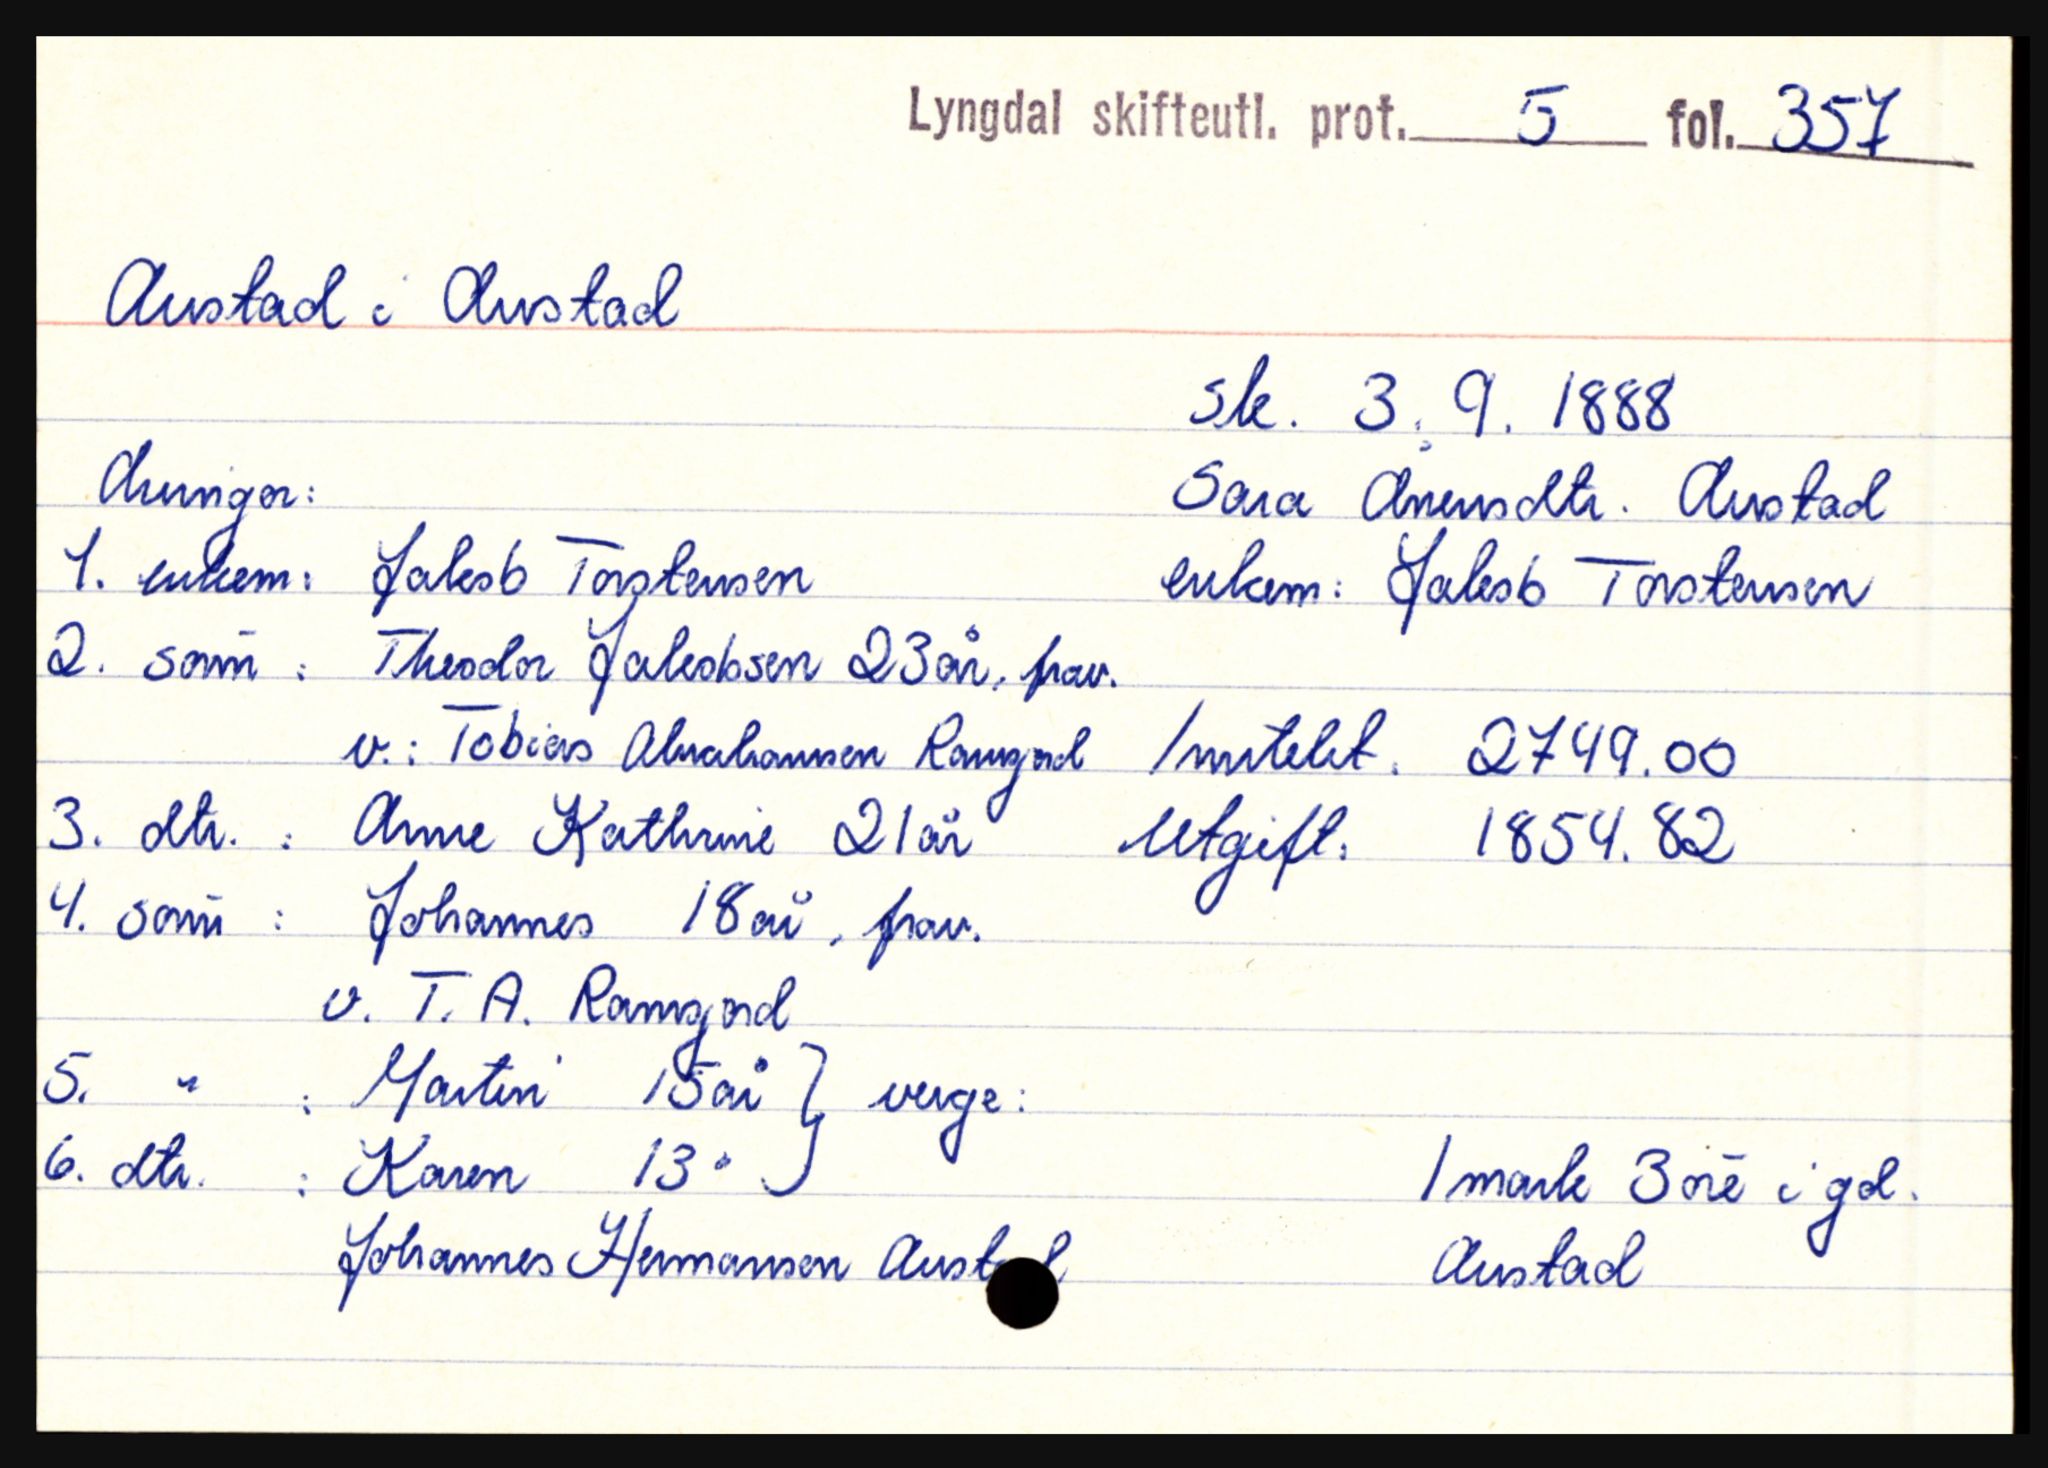 Lyngdal skifteutl. prot. 5 fol. 357
Austad i Austad
sk. 3.9.1888
Sara Anensdtr. Austad
enkem: Jakob Torstensen
Arvingar:
1. enkem: Jakob Torstensen
2. sønn : Theodor Jakobsen 23 år, frav.
v.: Tobias Abrahamsen Ramsjord
3. dtr. : Anne Kathrine 21 år
4. sønn : Johannes 18 år, frav.
v. T. A. Ramsjord
5. " : Martin 15 år } verge:
6. dtr. : Karen 13 "
Johannes Hermansen Austad
Inntekt. 2749.00
Utgift. 1854.82
1 mark 3 øre i gd.
Austad